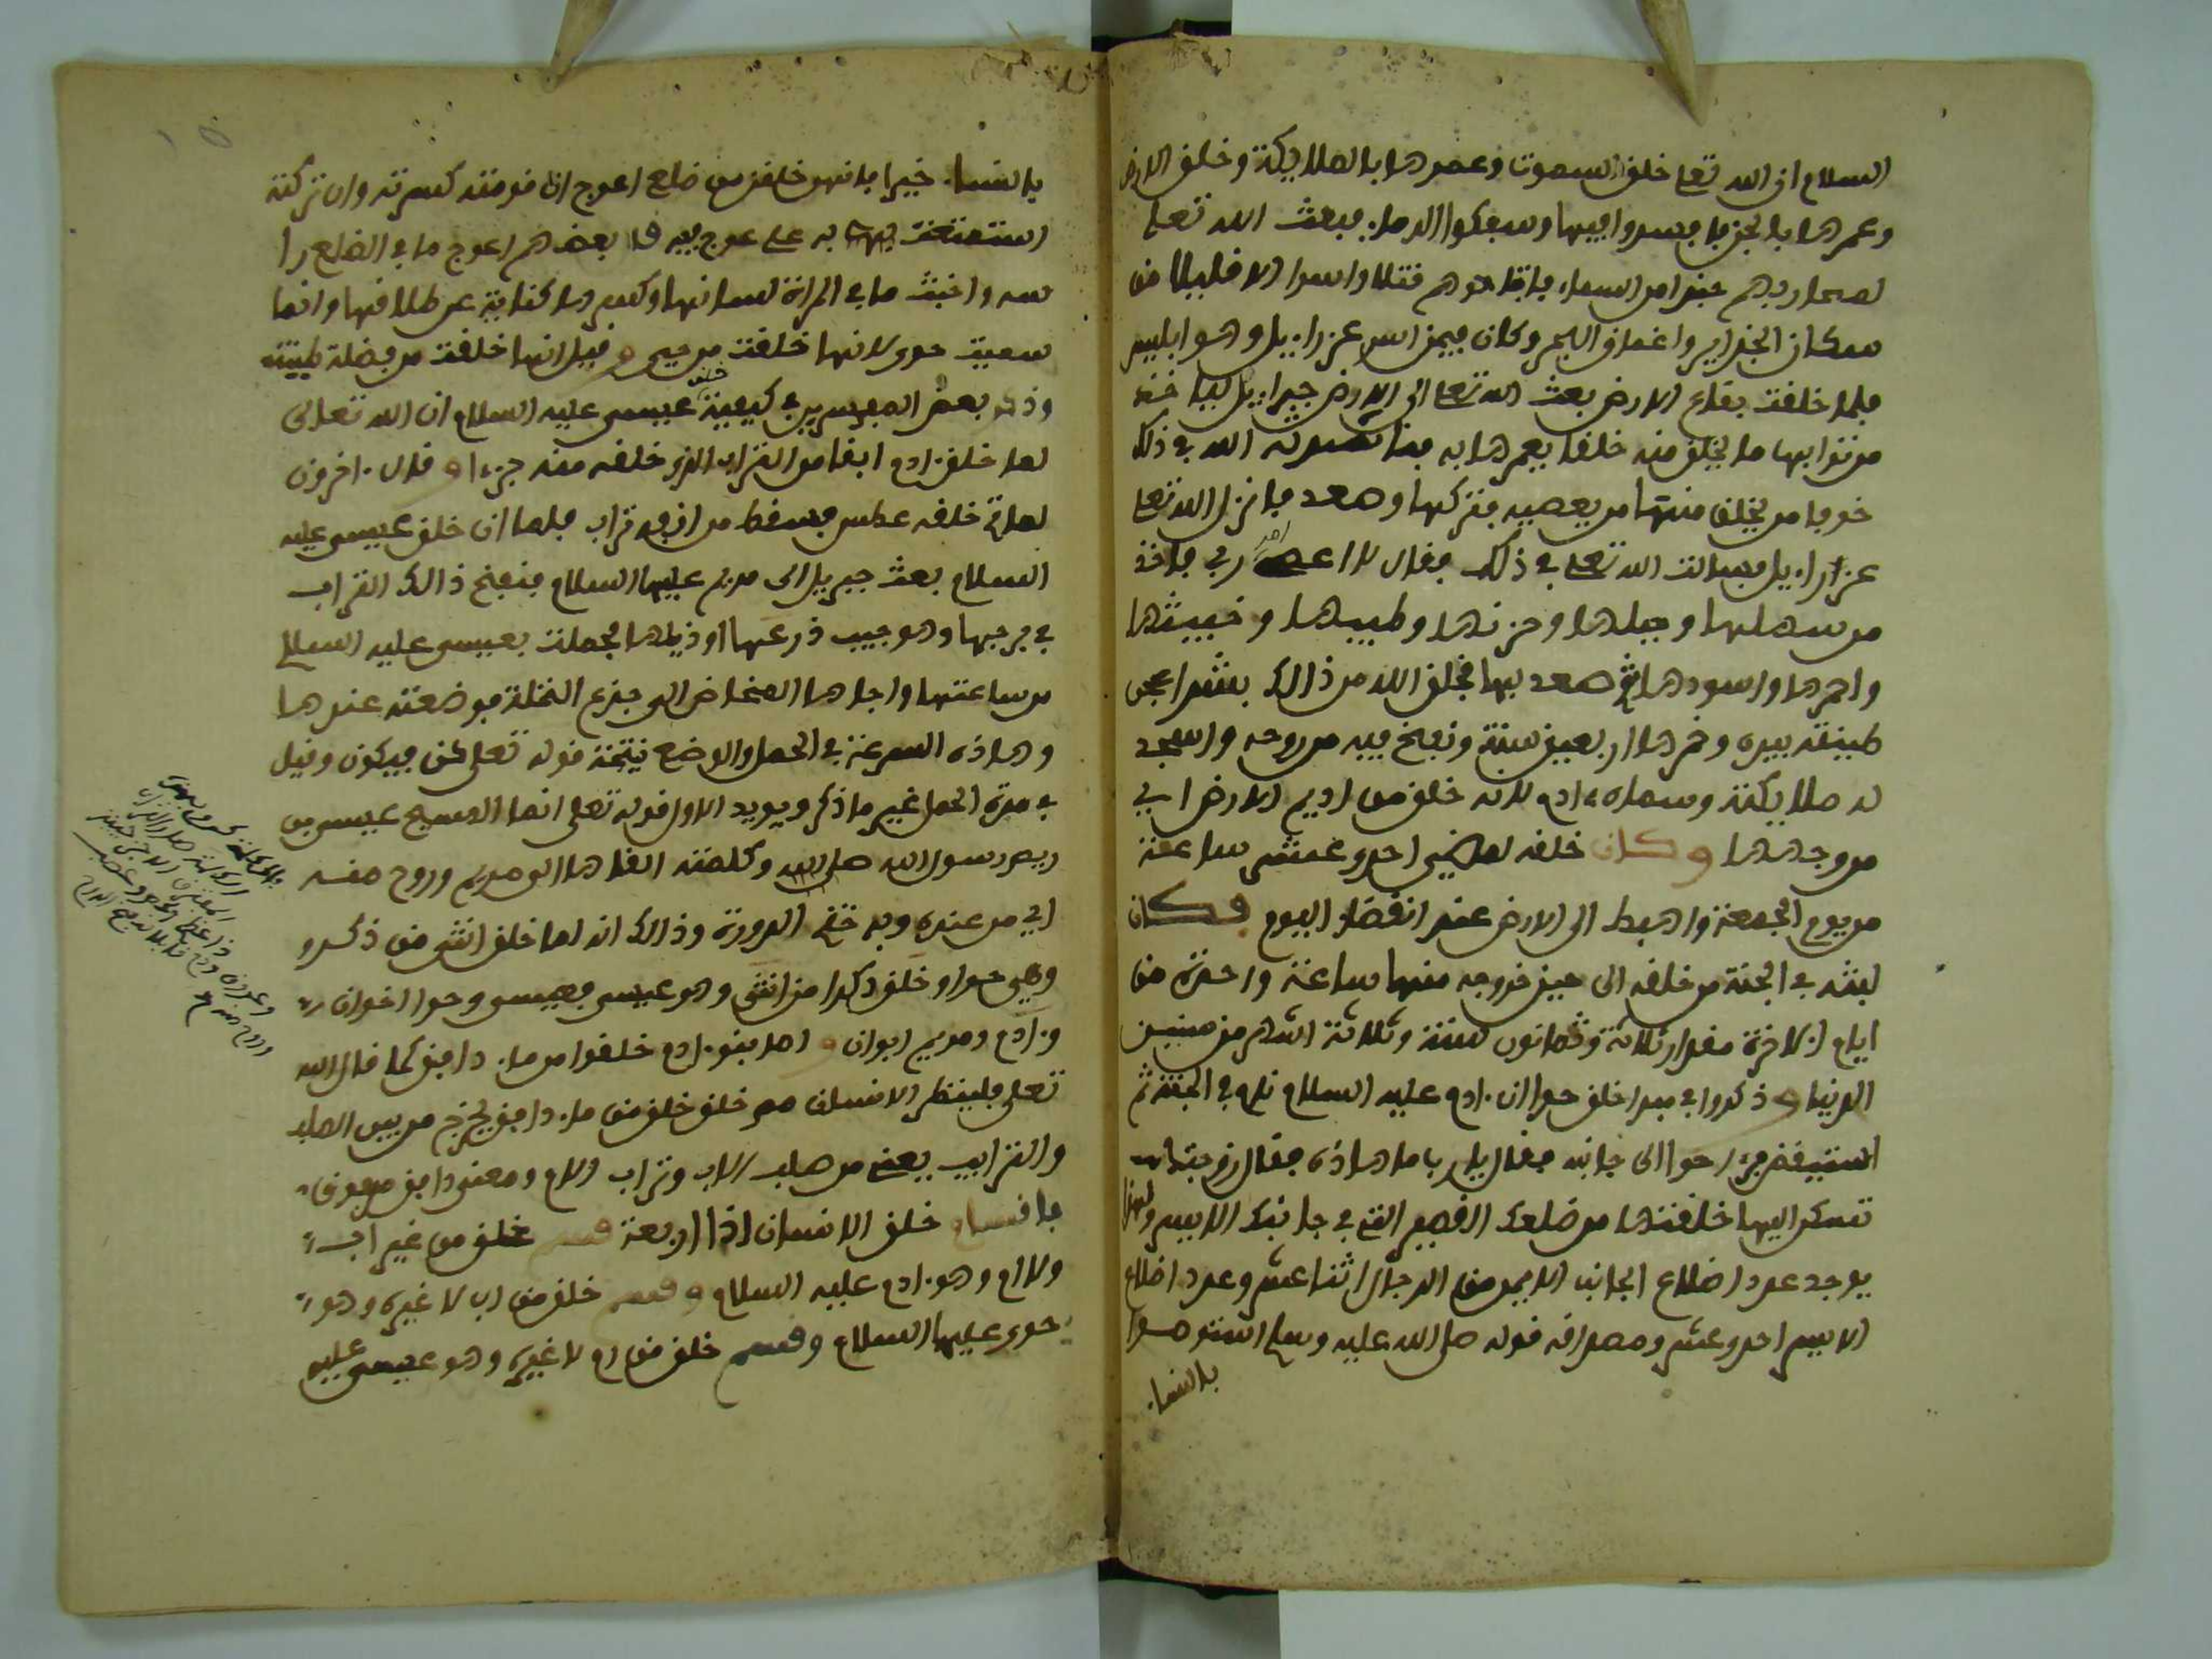 السلام ان الله تعلى خلق السموت وعمرها بالملايكة وخلق الارض
وعمرها بالجن فافسدوا فيها وسفكوا الدما. فبعث الله تعلى
لمحاربهم جندا من السماء فاتقاموهم قتلا واسرا الا قليلا من
سكان الجزاير واغماق البحر وكان فيمن اسر عزراءيل وهو ابليس
فلما خلقت بقاع الارض بعث الله تعلى الى الارض جبراءيل لياخذ
من ترابها ما يخلق منه خلقا يعمرها به الله في ذلك
خوفا من يخلق منها من يعصيه فتركها وصعد فانزل الله تعلى
عزراءيل فسالت الله تعلى في ذلك فقال لا اعصي امر ربي فاخذ
من سهلها وجبلها وحزنها وطيبها وخبيثها
واحمرها واسودها ثم صعد بها فخلق الله من ذالك بشرا عجن
طينته بيده وخمرها اربعين سنة ونفخ فيه من روحه واسجد
له ملايكته وسماه ءادم لانه خلق من اديم الارض اي
من وجهها وكان خلقه لمضي احدو عشر ساعة
من يوم الجمعة واهبط الى الارض عند انقضاء اليوم فكان
لبثه في الجنة من خلقه الى حين خروجه منها ساعة واحدة من
ايام الاخرة مقدار ثلاثة وثمانون سنة وثلاثة اشهر من سنين
الدنيا وذكروا في مبدا خلق حوا ان ءادم عليه السلام نام في الجنة ثم
استيقض فرءا حوا الى جانبه فقال يا رب ما هاذه فقال زوجتك
تسكن اليها خلقتها من ضلعك القصير التي في جانبك الايسر ولهذا
يوجد عدد اضلاع الجانب الايمن من الرجال اثنا عشر وعدد اضلاع
الايسر احدو عشر ومصداقه قوله صلى الله عليه وسلم استوصوا
بالنسا.
بالنسا. خيرا فانهن خلقن من ضلع اعوج ان قومته كسرته وان تركته
استمتعت به على عوج فيه قال بعضهم اعوج ما في الضلع را
سه واخبث ما في المراة لسانها وكسرها كناية عن طلاقها وانما
سميت حوى لانها خلقت من حي وقيل انها خلقت من فضلة طينته
وذكر بعض المفسرين في كيفية خلق عيسى عليه السلام ان الله تعالى
لما خلق ءادم ابقا من التراب الذي خلقه منه جزءا وقال ءاخرون
لما تم خلقه عطس فسقط من انفه تراب فلما ان خلق عيسى عليه
السلام بعث جبريل الى مريم عليها السلام فنفخ ذالك التراب
في فرجها وهو جيب ذرعها او ذيلها فحملت بعيسى عليه السلام
من ساعتها واجاها المخاض الى جذع النخلة فوضعته عندها
وهاذه السرعة في الحمل والوضع نتيجة قوله تعلى كن فيكون وقيل
في مدة الحمل غير ما ذكر ويويد الاول قوله تعلى انما المسيح عيسى بن
مريم رسول الله وكلمته القاها الى مريم وروح منه
اي من عنده وبه ختم الدورة وذالك انه لما خلق انثى من ذكر
وهي حوا وخلق ذكرا من انثى وهو عيسى فعيسى وحوا اخوان
وءادم ومريم ابوان واما بنو ءادم خلقوا من ماء دافق كما قال الله
تعلى فلينظر الانسان مم خلق خلق من ماء دافق يخرج من بين الصلب
والترايب يعني من صلب الاب وتراب الام ومعنى دافق مدفوق
فاقسام خلق الانسان اذا اربعة قسم خلق من غير اب
ولا ام وهو ءادم عليه السلام وقسم خلق من اب لا غيره وهو
حوى عليها السلام وقسم خلق من ام لا غيره وهو عيسى عليه